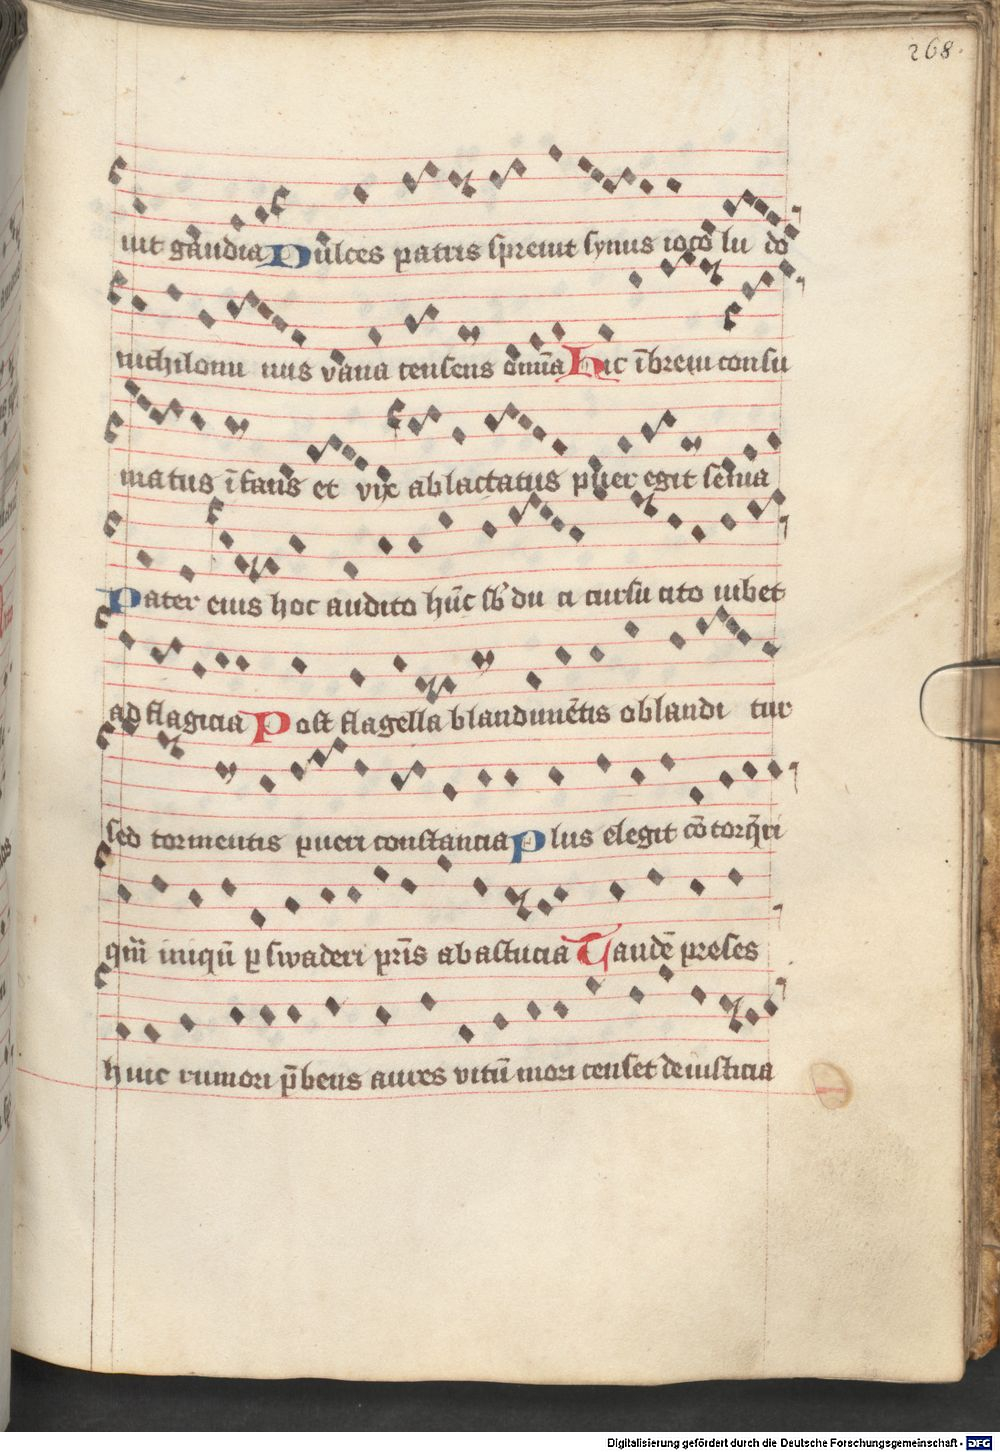 268.
uit gaudia Dulces patris spreuit synus ioco lu do
nichilomi nus vana censens omīa hic ībreui consu
matus īfans et vix ablactatus puer egit senia
Pater eius hoc audito hūc sb' du ci cursu cito iubet
ad flagicia Post flagella blandimētis oblandi tur
sed tormentis pueri constancia Plus elegit cō torq̄ri
iniqū p swaderi pr̄is ab astucia Tandē preses
huic rumori p̄bens aures vitū mori censet de iusticia
Digitalisierung gefördert durch die Deutsche Forschungsgemeinschaft - DFG